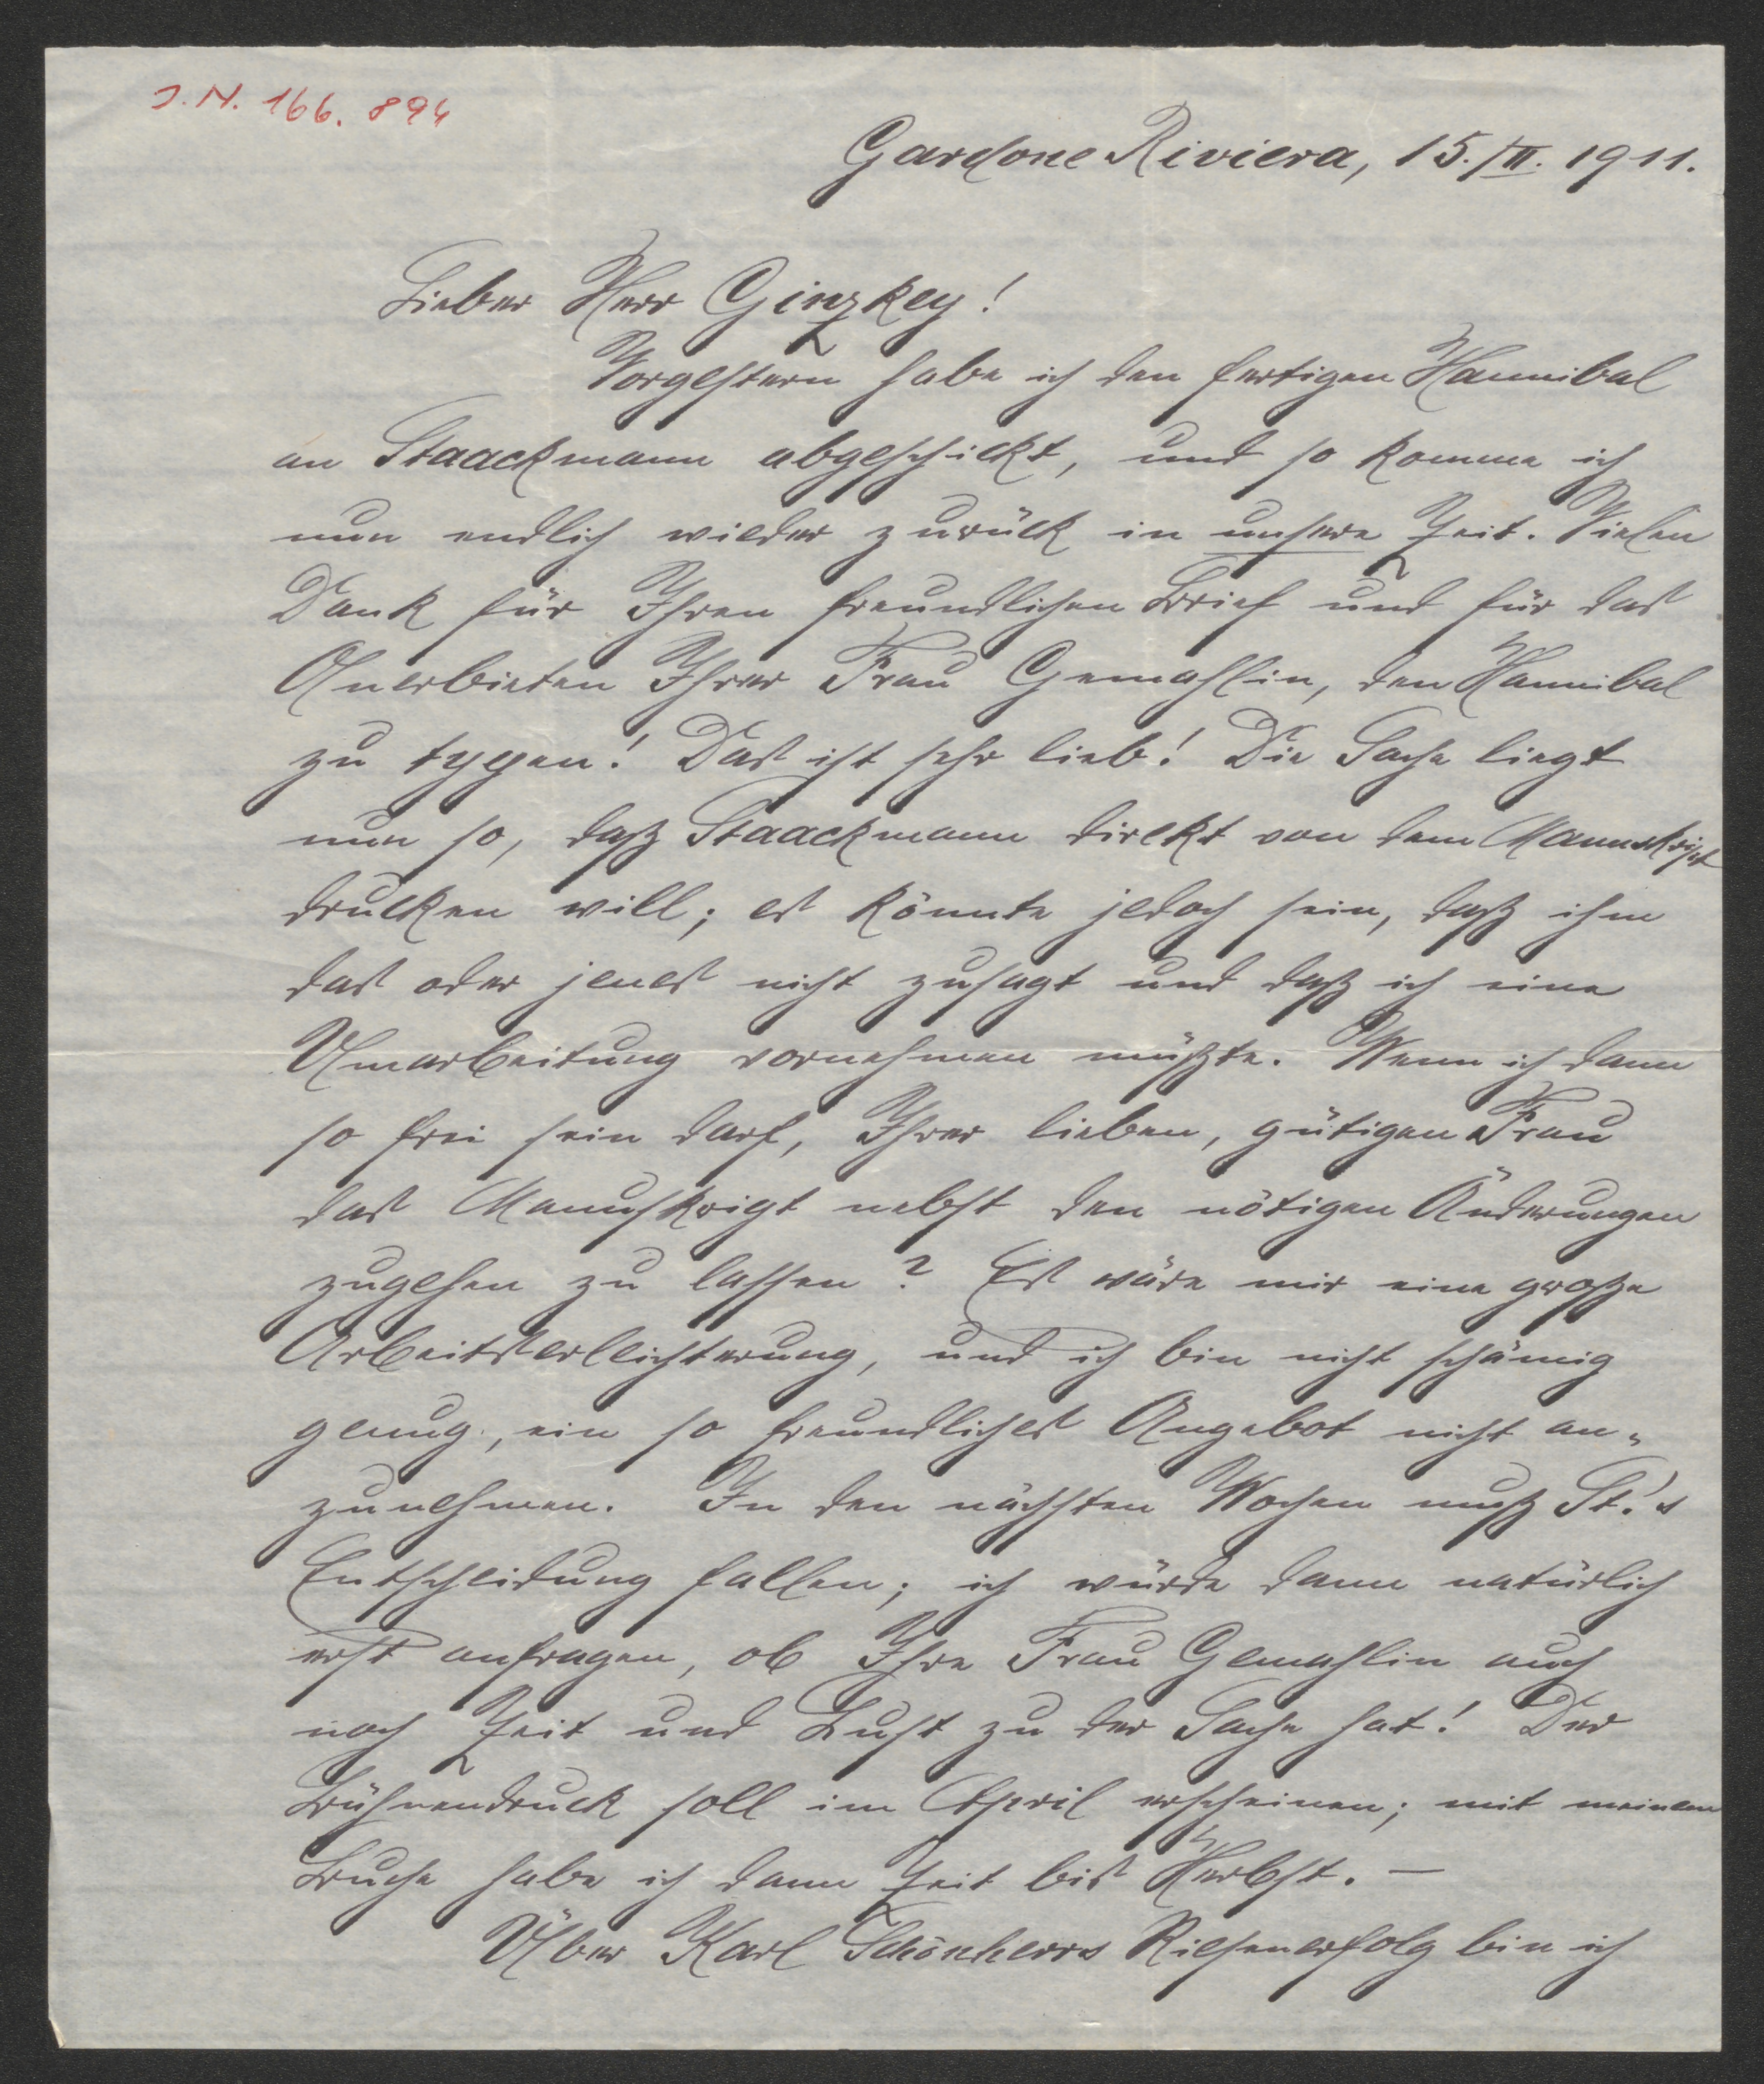 J. N. 166.894
Gardone Riviera, 15./II. 1911.
Lieber Herr Ginzkey!
Vorgestern habe ich den fertigen Hannibal
an Staackmann abgeschickt, und so komme ich
nun endlich wieder zurück in unsere Zeit. Vielen
Dank für Ihren freundlichen Brief und für das
Anerbieten Ihrer Frau Gemahlin, den Hannibal
zu typen! Das ist sehr lieb! Die Sache liegt
nun so, daß Staackmann direkt von dem Manuskript
drucken will; es könnte jedoch sein, daß ihm
das oder jenes nicht zusagt und daß ich eine
Umarbeitung vornehmen müßte. Wenn ich dann
so frei sein darf, Ihrer lieben, gütigen Frau
das Manuskript nebst den nötigen Änderungen
zugehen zu lassen? Es wäre mir eine große
Arbeitserleichterung, und ich bin nicht schämig
genug, ein so freundliches Angebot nicht an-
zunehmen. In den nächsten Wochen muß St.'s
Entscheidung fallen; ich würde dann natürlich
erst anfragen, ob Ihre Frau Gemahlin auch
noch Zeit und Lust zu der Sache hat! Der
Bühnendruck soll im April erscheinen; mit meinem
Buche habe ich dann Zeit bis Herbst. —
Über Karl Schönherrs Riesenerfolg bin ich